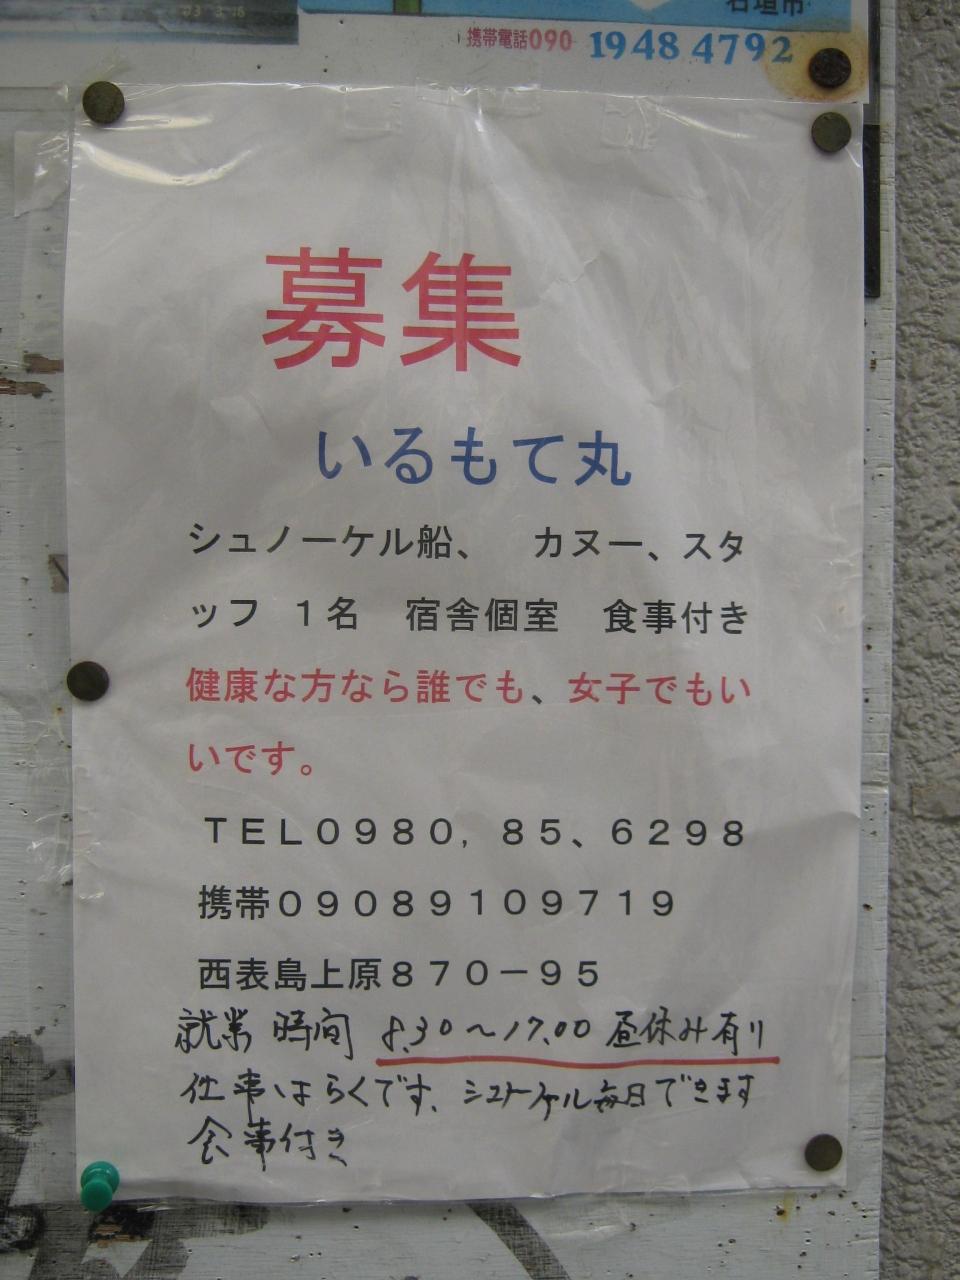 石垣市
携帯電話090 1948 4792
募集
いるもて丸
シュノーケル船、 カヌー、スタ
ッフ １名 宿舎個室 食事付き
健康な方なら誰でも、女子でもい
いです。
ＴＥＬ０９８０，８５、６２９８
携帯０９０８９１０９７１９
西表島上原８７０－９５
就業時間 8.30～17.00 昼休み有り
仕事はらくです、シュノーケル毎日できます
食事付き